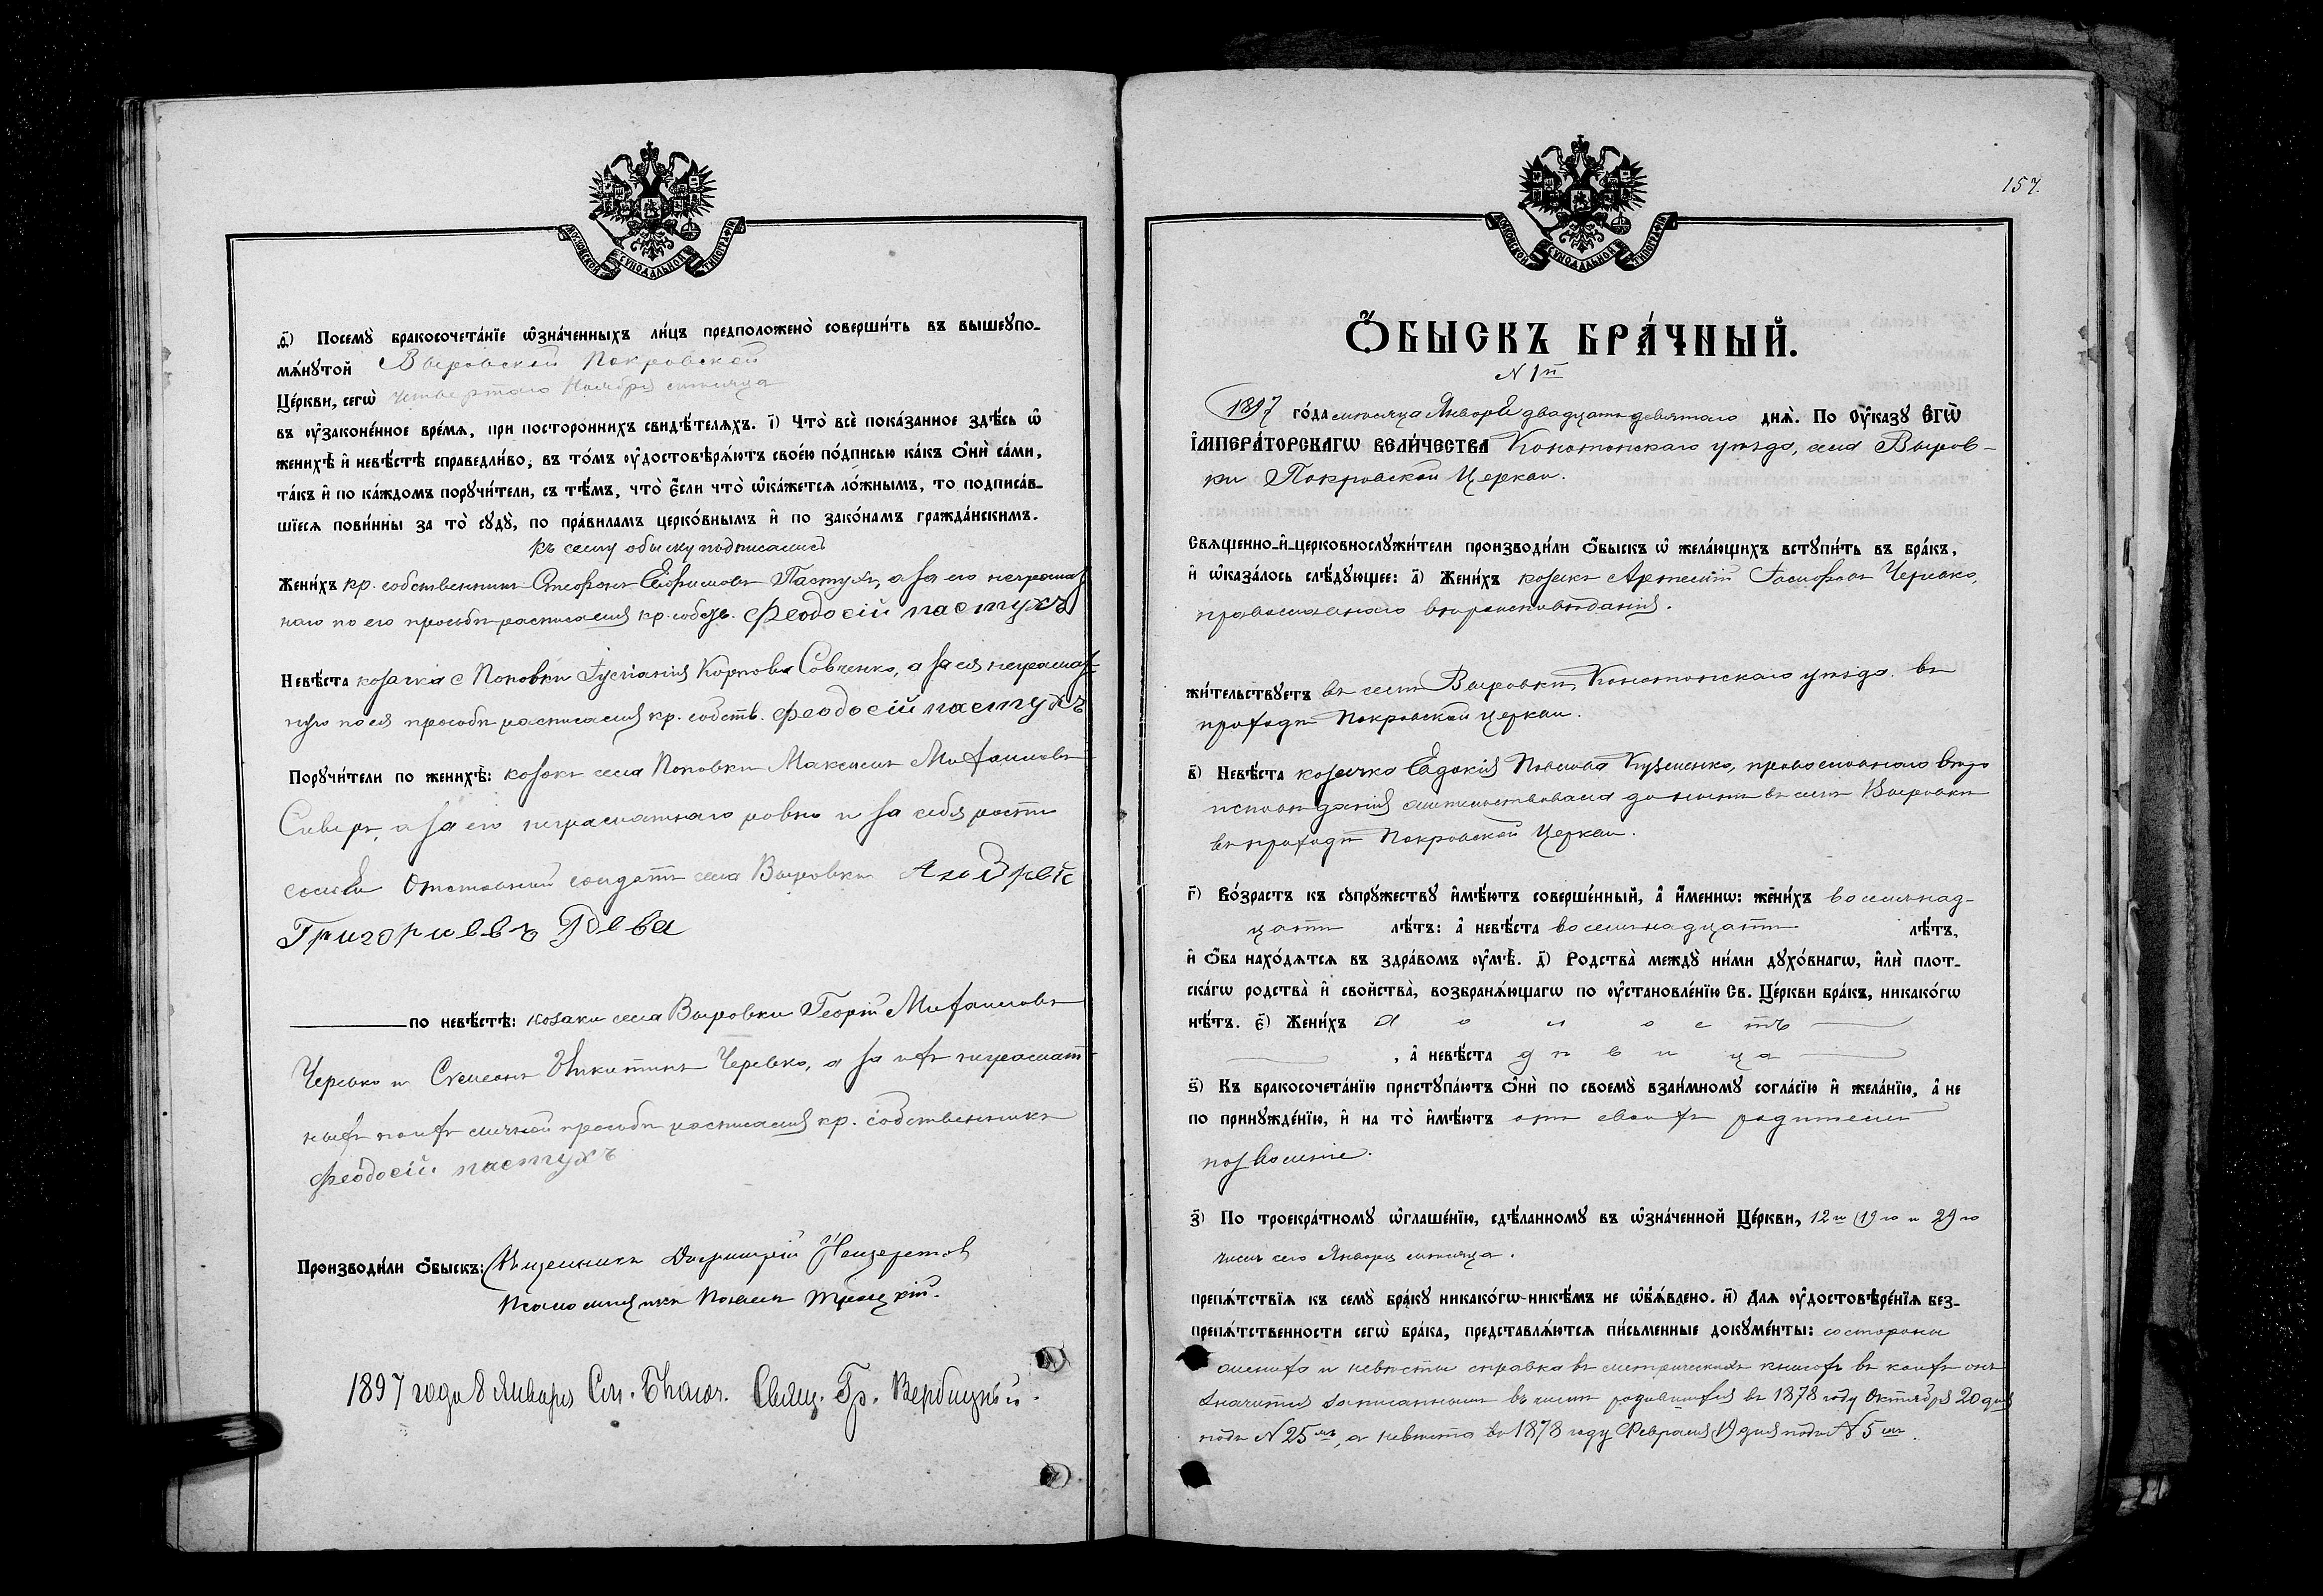 МОСКОВСКОЙ СѴНОДАЛЬНОЙ ТИПОГРАФІИ
ѳ҃) Посемꙋ̀ бракосочета́нїе ѡ҆зна́ченныхъ ли́цъ предположено̀ соверши́ть въ вышеꙋпо-
мѧ́нꙋтой Выровской Покровской
Це́ркви, сегѡ̀ четвертаго Ноября мѣсяца
въ ᲂу҆законе́нное вре́мѧ, при посторо́ннихъ свидѣ́телѧхъ. і҃) Что̀ всѐ пока́занное здѣ́сь ѡ҆
женихѣ̀ и҆ невѣ́стѣ справедли́во, въ то́мъ ᲂу҆достовѣрѧ́ютъ свое́ю по́дписью ка́къ ѻ҆нѝ са́ми,
та́къ и҆ по ка́ждомъ порꙋчи́тели, съ тѣ́мъ, что̀ є҆́сли что̀ ѡ҆ка́жетсѧ ло́жнымъ, то подписа́в-
шїесѧ пови́нны за то̀ сꙋдꙋ̀, по пра́виламъ церко́внымъ и҆ по зако́намъ гражда́нскимъ.
Къ сему обыску подписались
Жени́хъ кр. собственникъ Стефанъ Евфимовъ Пастухъ, а за его неграмот
наго по его просьбѣ росписался кр. собств. Феодосій пастухъ
Невѣ́ста козачка с Поповки Іуліанія Карпова Савченко, а за ея неграмот-
ную по ея просьбѣ росписался кр. собств. Феодосій пастухъ
Порꙋчи́тели по женихѣ̀: козакъ села Поповки Максимъ Михаиловъ
Сиверъ, а за его неграмотнаго ровно и за себя распи
сался Отставной солдатъ села Выровки Андрей
Григориевъ Рева
по невѣ́стѣ: козаки села Выровки Георгій Михаиловъ
Черевко и Симеонъ Никитинъ Черевко, а за ихъ неграмот-
ныхъ по ихъ личной просьбѣ росписался кр. собственникъ
Феодосій пастухъ
Производи́ли ѻ҆́быскъ: Священникъ Димитрій
Псаломщикъ Павелъ Троицкій.
1897 года 8 Января Свящ. Гр. Вербицкый.
157.
МОСКОВСКОЙ СѴНОДАЛЬНОЙ ТИПОГРАФІИ
Ѻ҆́БЫСКЪ БРА́ЧНЫЙ.
N 1й
1897 го́да мѣсяца Января двадцать девятаго днѧ̀. По Оу҆́казꙋ Є҆гѡ̀
І҆мпера́торскагѡ Вели́чества Конотопскаго уѣзда, села Выров-
ки Покровской Церкви.
Свѧщенно-и҆-церковнослꙋжи́тели производи́ли ѻ҆́быскъ ѡ҆ жела́ющихъ встꙋпи́ть въ бра́къ,
и҆ ѡ҆каза́лось слѣ́дꙋющее: а҃) Жени́хъ козакъ Артемій Іасифовъ Черевко,
православнаго вѣроисповѣданія.
жи́тельствꙋетъ въ селѣ Выровкѣ, Конотопскаго уѣзда въ
приходѣ Покровской церкви.
в҃) Невѣ́ста козачка Евдокія Павлова Кузменко, православнаго вѣро
исповѣданія жительствовала до нынѣ въ селѣ Выровкѣ
въ приходѣ Покровской Церкви.
г҃) Во́зрастъ къ сꙋпрꙋ́жествꙋ и҆мѣ́ютъ соверше́нный, а҆ и҆́меннѡ: жени́хъ восемнад-
цати лѣ́тъ: а҆ невѣ́ста восемнадцати лѣ́тъ,
и҆ ѻ҆́ба нахо́дѧтсѧ въ здра́вомъ ᲂу҆мѣ̀. д҃) Родства̀ междꙋ̀ ни́ми дꙋхо́внагѡ, и҆лѝ плот-
ска́гѡ родства̀ и҆ свойства̀, возбранѧ́ющагѡ по ᲂу҆становле́нїю Св. Це́ркви бра́къ, никако́гѡ
нѣ́тъ. є҃) Жени́хъ холостъ
, а҆ невѣ́ста дѣвица
ѕ҃) Къ бракосочета́нїю пристꙋпа́ютъ ѻ҆нѝ по своемꙋ̀ взаи́мномꙋ согла́сїю и҆ жела́нїю, а҆ не
по принꙋжде́нїю, и҆ на то̀ и҆мѣ́ютъ отъ своихъ родителей
позволеніе.
з҃) По троекра́тномꙋ ѡ҆глаше́нїю, сдѣ́ланномꙋ въ ѡ҆зна́ченной Це́ркви, 12го 19го и 29го
чиселъ сего Января мѣсяца.
препѧ́тствїѧ къ семꙋ̀ бра́кꙋ никако́гѡ никѣ́мъ не ѡ҆б̾ѧ́влено. и҃) Длѧ ᲂу҆достовѣре́нїѧ без-
препѧ́тственности сегѡ̀ бра́ка, представлѧ́ютсѧ пи́сьменные докꙋме́нты: со стороны
жениха и невѣсты справка въ метрическихъ книгахъ въ коихъ онъ
значится записаннымъ въ числѣ родившихся въ 1878 году Октября 20 дня
подъ N 25мъ, а невѣста въ 1878 году Февраля 19 дня подъ N 5мъ.